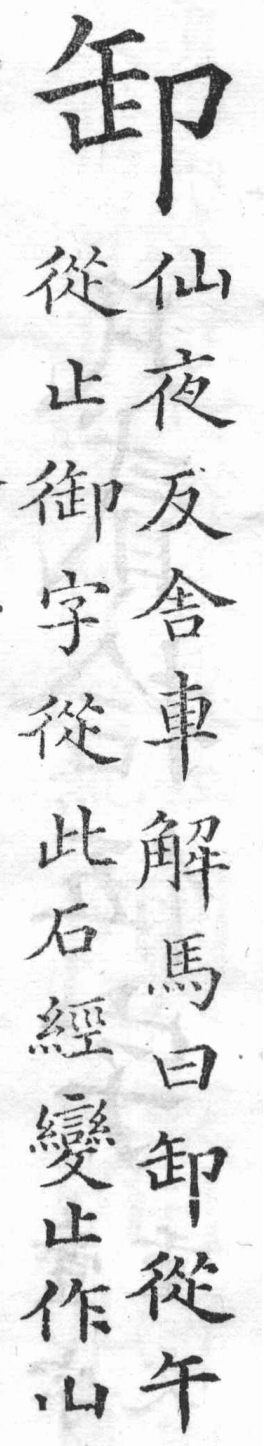 卸
仙夜反舎車解馬曰卸從午
從止御字從此石經變止作山